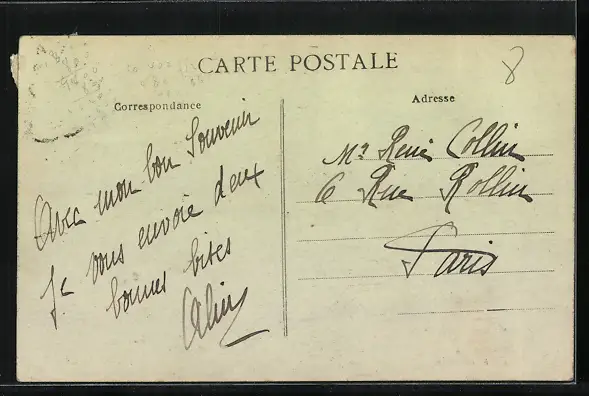 CARTE POSTALE
8
Correspondance
Avec mon bon Souvenir
Je vous envoie deux
bonnes bises
Adresse
Mr René Collin
6 Rue Rollin
Paris